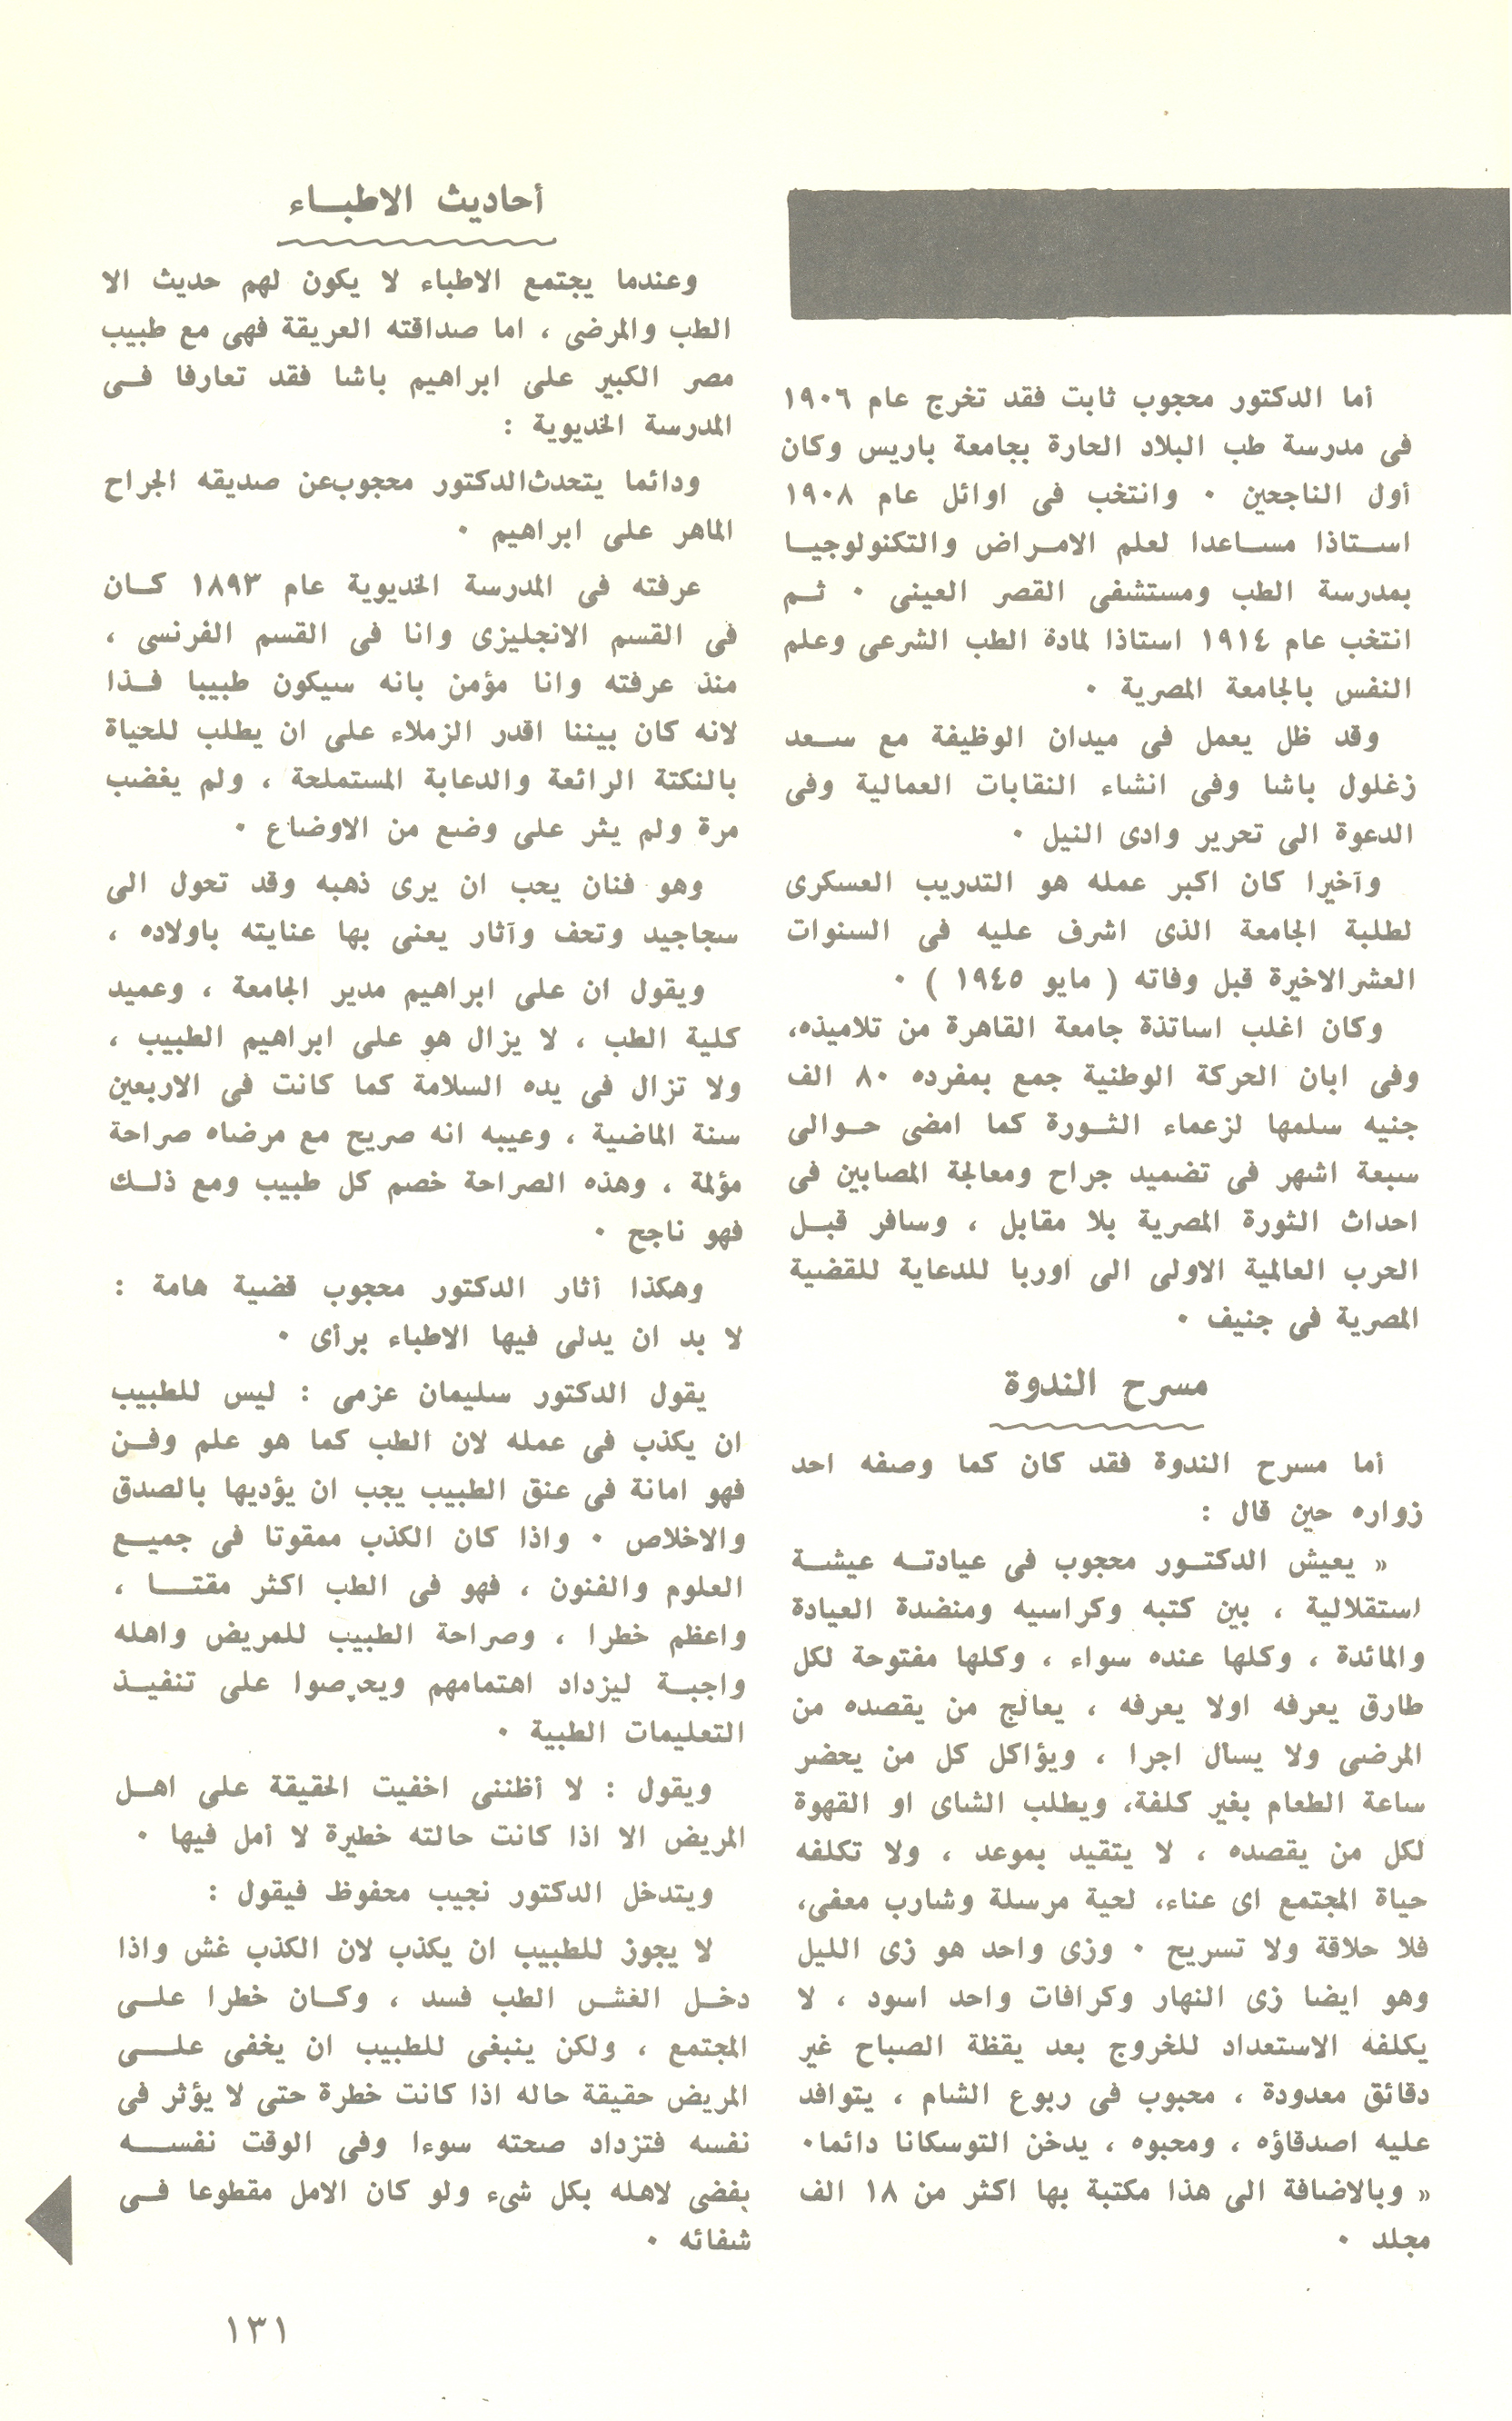 أما الدكتور محجوب ثابت فقد تخرج عام ١٩٠٦
فى مدرسة طب البلاد الحارة بجامعة باريس وكان
أول الناجحين ٠ وانتخب فى اوائل عام ١٩٠٨
اسـتاذا مسـاعدا لعلم الامـراض والتكنولوجيـا
بمدرسة الطب ومستشفى القصر العينى ٠ ثـم
انتخب عام ١٩١٤ استاذا لمادة الطب الشرعى وعلم
النفس بالجامعة المصرية ٠
وقد ظل يعمل فى ميدان الوظيفة مع سـعد
زغلول باشا وفى انشاء النقابات العمالية وفى
الدعوة الى تحرير وادى النيل ٠
وآخيرا كان اكبر عمله هو التدريب العسكرى
لطلبة الجامعة الذى اشرف عليه فى السنوات
العشر الاخيرة قبل وفاته ( مايو ١٩٤٥ ) ٠
وكان اغلب اساتذة جامعة القاهرة من تلاميذه،
وفى ابان الحركة الوطنية جمع بمفرده ٨٠ الف
جنيه سلمها لزعماء الثـورة كما امضى حـوالى
سبعة اشهر فى تضميد جراح ومعالجة المصابين فى
احداث الثورة المصرية بلا مقابل ، وسافر قبـل
الحرب العالمية الاولى الى اوربا للدعاية للقضية
المصرية فى جنيف ٠
مسرح الندوة
أما مسرح الندوة فقد كان كما وصفه احد
زواره حين قال :
« يعيش الدكتـور محجوب فى عيادتـه عيشـة
استقلالية ، بين كتبه وكراسيه ومنضدة العيادة
والمائدة ، وكلها عنده سواء ، وكلها مفتوحة لكل
طارق يعرفه اولا يعرفه ، يعالج من يقصده من
المرضى ولا يسأل اجرا ، ويؤاكل كل من يحضر
ساعة الطعام بغير كلفة، ويطلب الشاى او القهوة
لكل من يقصده ، لا يتقيد بموعد ، ولا تكلفه
حياة المجتمع اى عناء، لحية مرسلة وشارب معفى،
فلا حلاقة ولا تسريح ٠ وزى واحد هو زى الليل
وهو ايضا زى النهار وكرافات واحد اسود ، لا
يكلفه الاستعداد للخروج بعد يقظة الصباح غير
دقائق معدودة ، محبوب فى ربوع الشام ، يتوافد
عليه اصدقاؤه ، ومحبوه ، يدخن التوسكانا دائما٠
« وبالاضافة الى هذا مكتبة بها اكثر من ١٨ الف
مجلد ٠
أحاديث الاطبـاء
وعندما يجتمع الاطباء لا يكون لهم حديث الا
الطب والمرضى ، اما صداقته العريقة فهى مع طبيب
مصر الكبير على ابراهيم باشا فقد تعارفا فـى
المدرسة الخديوية :
ودائما يتحدث الدكتور محجوب عن صديقه الجراح
الماهر على ابراهيم ٠
عرفته فى المدرسة الخديوية عام ١٨٩٣ كـان
فى القسم الانجليزى وانا فى القسم الفرنسى ،
منذ عرفته وانا مؤمن بانه سيكون طبيبا فـذا
لانه كان بيننا اقدر الزملاء على ان يطلب للحياة
بالنكتة الرائعة والدعابة المستملحة ، ولم يغضب
مرة ولم يثر على وضع من الاوضاع ٠
وهو فنان يحب ان يرى ذهبه وقد تحول الى
سجاجيد وتحف وآثار يعنى بها عنايته باولاده ،
ويقول ان على ابراهيم مدير الجامعة ، وعميد
كلية الطب ، لا يزال هو على ابراهيم الطبيب ،
ولا تزال فى يده السلامة كما كانت فى الاربعين
سنة الماضية ، وعيبه انه صريح مع مرضاه صراحة
مؤلمة ، وهذه الصراحة خصم كل طبيب ومع ذلـك
فهو ناجح ٠
وهكذا أثار الدكتور محجوب قضية هامة :
لا بد ان يدلى فيها الاطباء برأى ٠
يقول الدكتور سليمان عزمى : ليس للطبيب
ان يكذب فى عمله لان الطب كما هو علم وفـن
فهو امانة فى عنق الطبيب يجب ان يؤديها بالصدق
والاخلاص ٠ واذا كان الكذب ممقوتا فى جميـع
العلوم والفنون ، فهو فى الطب اكثر مقتـا ،
واعظم خطرا ، وصراحة الطبيب للمريض واهله
واجبـة ليزداد اهتمامهم ويحرصوا على تنفيـذ
التعليمات الطبية ٠
ويقول : لا أظننى اخفيت الحقيقة على اهـل
المريض الا اذا كانت حالته خطيرة لا أمل فيها ٠
ويتدخل الدكتور نجيب محفوظ فيقول :
لا يجوز للطبيب ان يكذب لان الكذب غش واذا
دخـل الغش الطب فسد ، وكـان خطرا علـى
المجتمع ، ولكن ينبغى للطبيب ان يخفى علـى
المريض حقيقة حاله اذا كانت خطرة حتى لا يؤثر فى
نفسه فتزداد صحته سوءا وفى الوقت نفسـه
يفضى لاهله بكل شىء ولو كان الامل مقطوعا فـى
شفائه ٠
١٣١